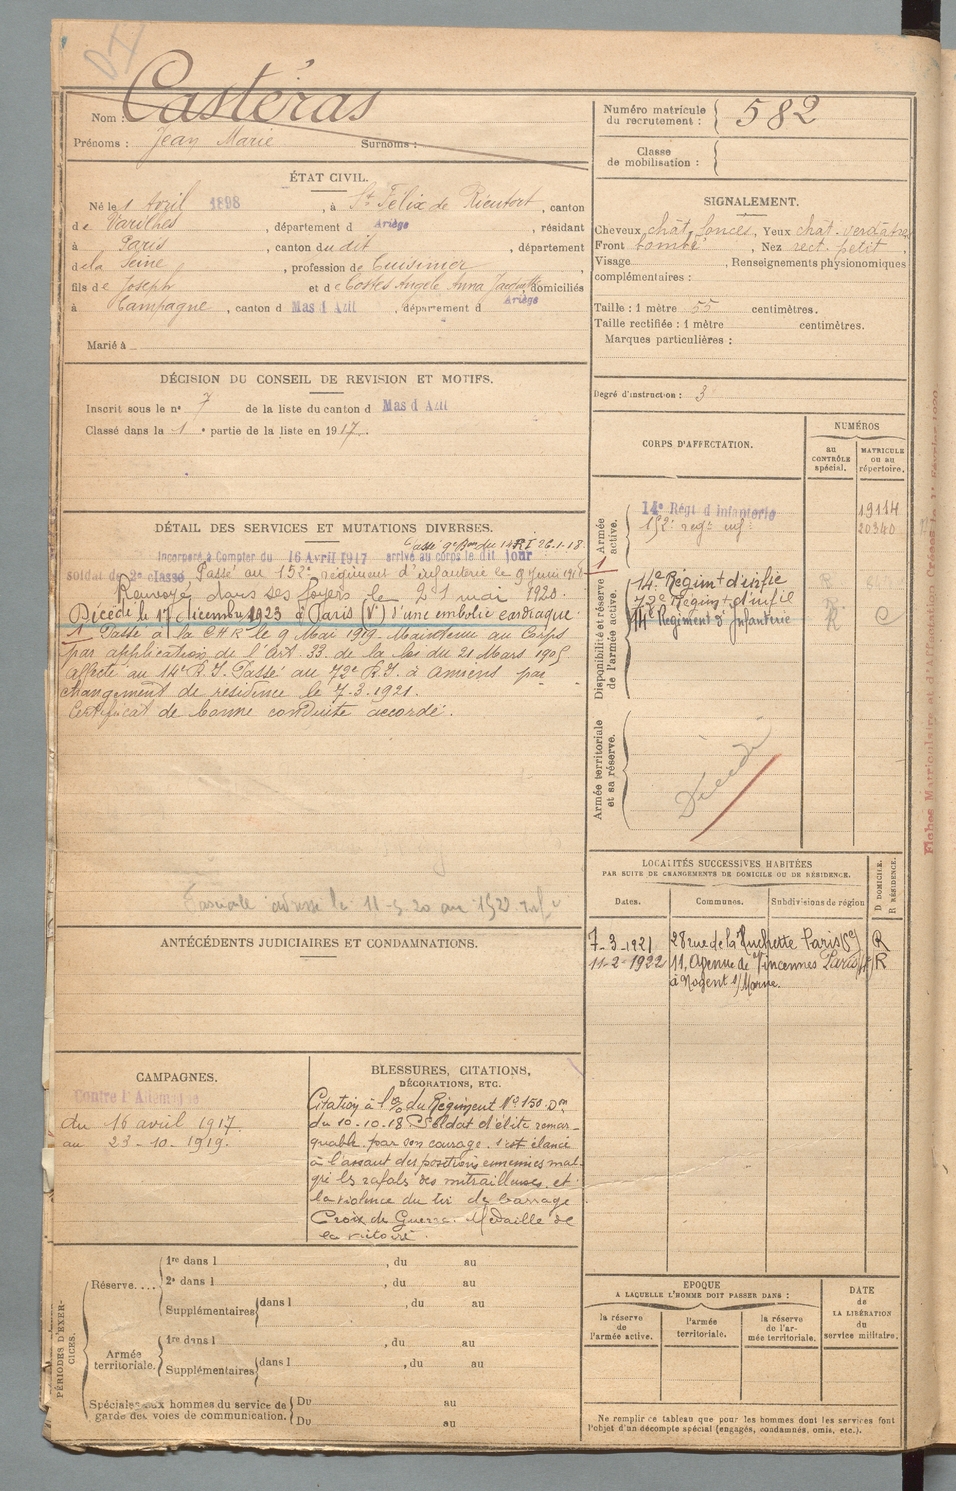 Castéras
Nom :
Prénoms : Jean Marie Surnoms :
ÉTAT CIVIL.
Né le 1 Avril 1898, à St Félix de Rieutort, canton
de Varilhes, département d Ariège, résidant
à Paris, canton du dit, département
de la Seine, profession de Cuisinier,
fils de Joseph et de Costes Angèle Anna, domiciliés
à Campagne, canton d Mas d Azil, département d Ariège
Marié à
DÉCISION DU CONSEIL DE REVISION ET MOTIFS.
Inscrit sous le no 7 de la liste du canton d Mas d Azil
Classé dans la 1e partie de la liste en 1917.
DÉTAIL DES SERVICES ET MUTATIONS DIVERSES.
Passé 9e du 14e RI 26.1.18.
Incorporé à Compter du 16 Avril 1917 arrivé au corps le dit jour
soldat de 2e classe Passé au 152e régiment d'infanterie le 9 Juin 1918
Renvoyé dans ses foyers le 1 mai 1920.
Décédé le 17 décembre 1923 à Paris (Ve) d'une embolie cardiaque.
1 Passé à la CHR le 9 Mai 1919. Maintenu au Corps
par application de l'Art. 33 de la loi du 21 Mars 1905
affecté au 14e R.I. Passé au 72e R.I. à Amiens par
changement de résidence le 7.3.1921.
Certificat de bonne conduite accordé.
adresse le 11-5-20 au
ANTÉCÉDENTS JUDICIAIRES ET CONDAMNATIONS.
CAMPAGNES.
Contre l'Allemagne
du 16 avril 1917.
au 23-10-1919.
BLESSURES, CITATIONS,
DÉCORATIONS, ETC.
Citation à l'o/ du Régiment No 150. Dm
du 10-10-18 Soldat d'élite remar-
quable par son courage. s'est élancé
à l'assaut des positions ennemies mal-
gré les rafales des mitrailleuses et
la violence du tir de barrage
Croix de Guerre. Médaille de
la victoire.
PÉRIODES D'EXERCICES.
Réserve....
1re dans l , du au
2e dans l , du au
Supplémentaires dans l , du au
Armée territoriale.
1re dans l , du au
Supplémentaires dans l , du au
Spéciales aux hommes du service de garde des voies de communication.
Du au
Du au
Numéro matricule du recrutement : 582
Classe de mobilisation :
SIGNALEMENT.
Cheveux chât. foncés, Yeux chât. verdâtres
Front bombé, Nez rect. petit
Visage , Renseignements physionomiques
complémentaires :
Taille : 1 mètre 55 centimètres.
Taille rectifiée : 1 mètre centimètres.
Marques particulières :
Degré d'instruction : 3
CORPS D'AFFECTATION.
NUMÉROS
au CONTRÔLE spécial.
MATRICULE ou au répertoire.
Armée active.
14e Régt d Infanterie 19114
152e regt inf 20340
1
Disponibilité et réserve de l'armée active.
14e Régimt d'infie
72e Régimt d'infie
14e Régiment d'Infanterie R C
Armée territoriale et sa réserve.
Décédé
LOCALITÉS SUCCESSIVES HABITÉES
PAR SUITE DE CHANGEMENTS DE DOMICILE OU DE RÉSIDENCE.
Dates. Communes. Subdivisions de région
D. DOMICILE. R. RÉSIDENCE.
7-3-1921 28 rue de la Huchette Paris (5e) R
11-2-1922 11, Avenue de Vincennes R
à Nogent s/Marne.
EPOQUE
A LAQUELLE L'HOMME DOIT PASSER DANS :
la réserve de l'armée active.
l'armée territoriale.
la réserve de l'armée territoriale.
DATE de LA LIBÉRATION du service militaire.
Ne remplir ce tableau que pour les hommes dont les services font
l'objet d'un décompte spécial (engagés, condamnés, omis, etc.).